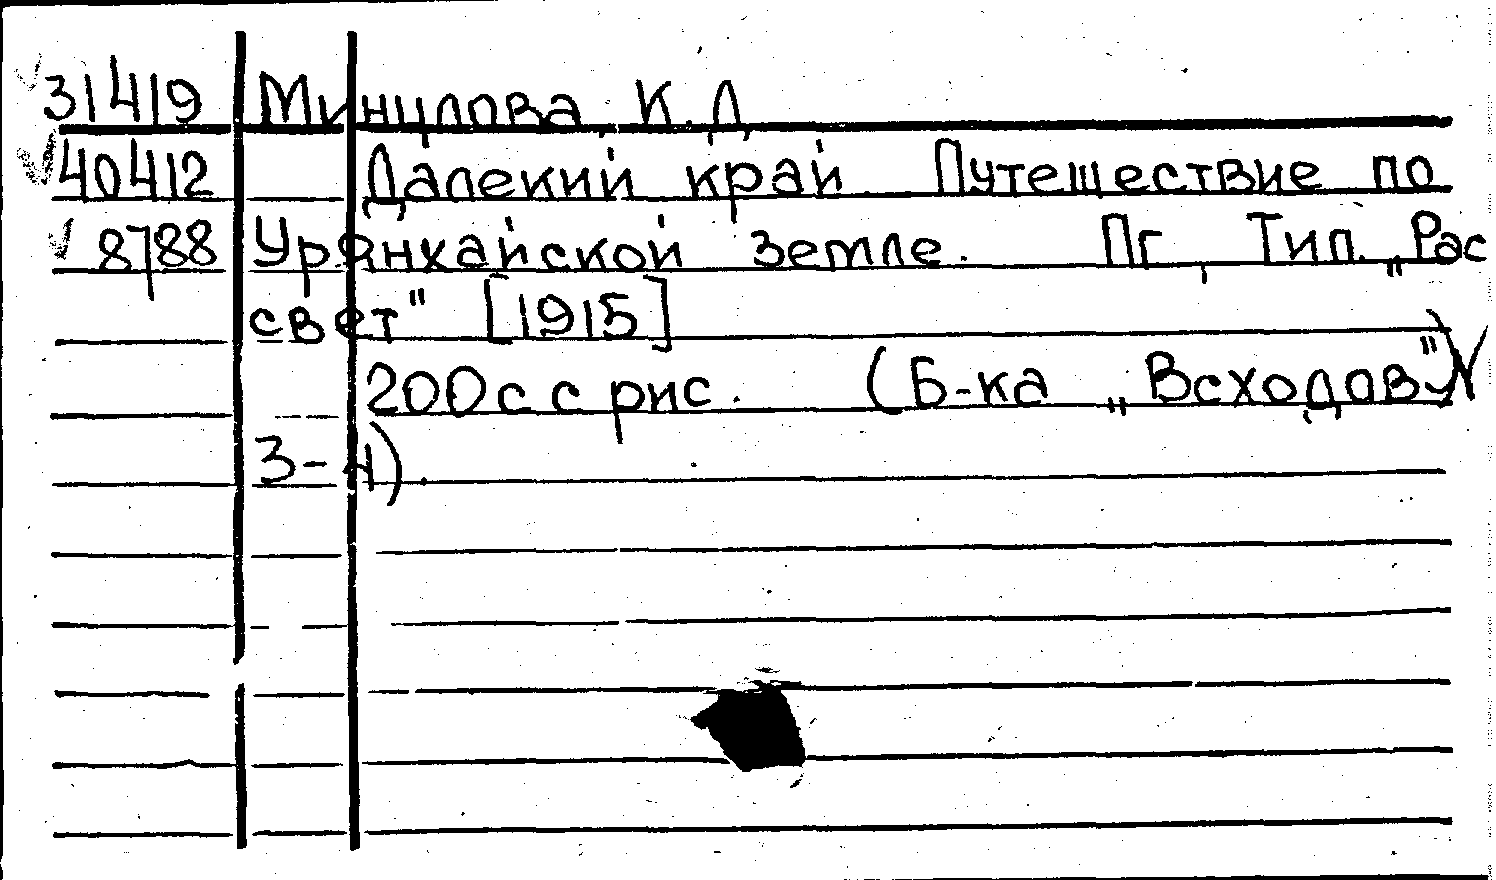 31419 Минцлова, К.Д
40412 Далекий край. Путешествие по
8788 Урянхайской земле. Пг, Тип. „Рас
свет" [1915]
200с с рис. (Б-ка „Всходов") №
3-4).